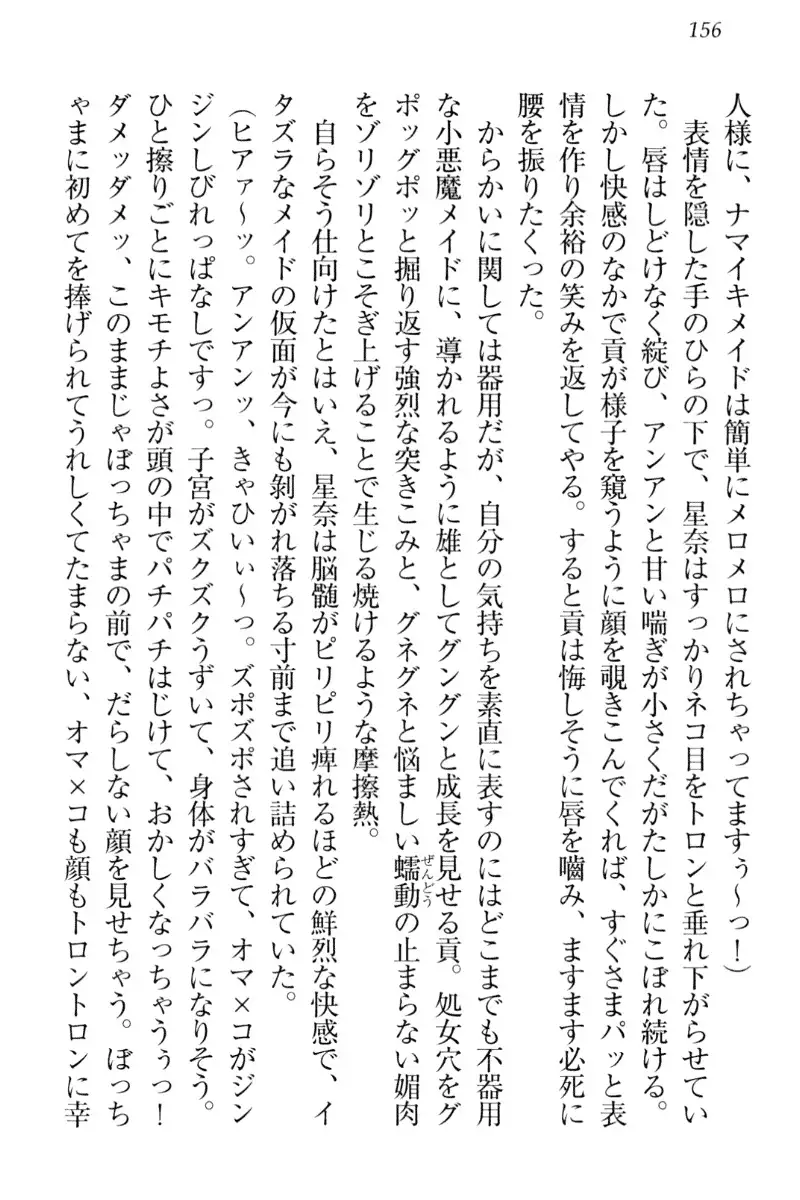 156
人様に、ナマイキメイドは簡単にメロメロにされちゃってますぅ〜っ！）
表情を隠した手のひらの下で、星奈はすっかりネコ目をトロンと垂れ下がらせてい
た。唇はしどけなく綻び、アンアンと甘い喘ぎが小さくだがたしかにこぼれ続ける。
しかし快感のなかで貢が様子を窺うように顔を覗きこんでくれば、すぐさまパッと表
情を作り余裕の笑みを返してやる。すると貢は悔しそうに唇を嚙み、ますます必死に
腰を振りたくった。
からかいに関しては器用だが、自分の気持ちを素直に表すのにはどこまでも不器用
な小悪魔メイドに、導かれるように雄としてグングンと成長を見せる貢。処女穴をグ
ポッグポッと掘り返す強烈な突きこみと、グネグネと悩ましい蠕動ぜんどうの止まらない媚肉
をゾリゾリとこそぎ上げることで生じる焼けるような摩擦熱。
自らそう仕向けたとはいえ、星奈は脳髄がピリピリ痺れるほどの鮮烈な快感で、イ
タズラなメイドの仮面が今にも剝がれ落ちる寸前まで追い詰められていた。
（ヒアァ〜ッ。アンアンッ、きゃひいぃ〜っ。ズポズポされすぎて、オマ×コがジン
ジンしびれっぱなしですっ。子宮がズクズクうずいて、身体がバラバラになりそう。
ひと擦りごとにキモチよさが頭の中でパチパチはじけて、おかしくなっちゃうぅっ！
ダメッダメッ、このままじゃぼっちゃまの前で、だらしない顔を見せちゃう。ぼっち
ゃまに初めてを捧げられてうれしくてたまらない、オマ×コも顔もトロントロンに幸